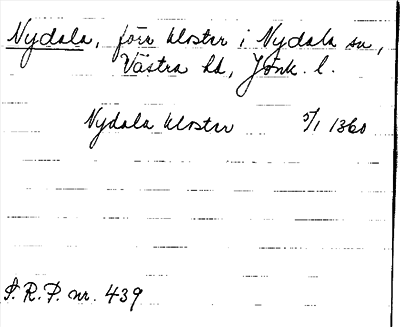 Nydala, förr kloster i Nydala sn,
Västra hd, Jönk. l.
Nydala kloster 5/1 1360
S. R. P. nr. 439